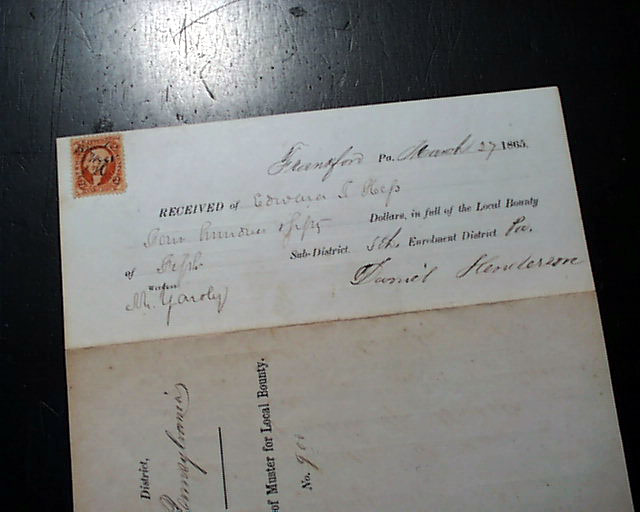 Frankford Pa. March 27 1865.
RECEIVED of Edward T Hess
Four hundred & fifty Dollars, in full of the Local Bounty
of Fifth Sub-District. 5th Enrolment District Pa.
Daniel Henderson
M. Yardly
District,
Pennsylvania
of Muster for Local Bounty.
No. 900